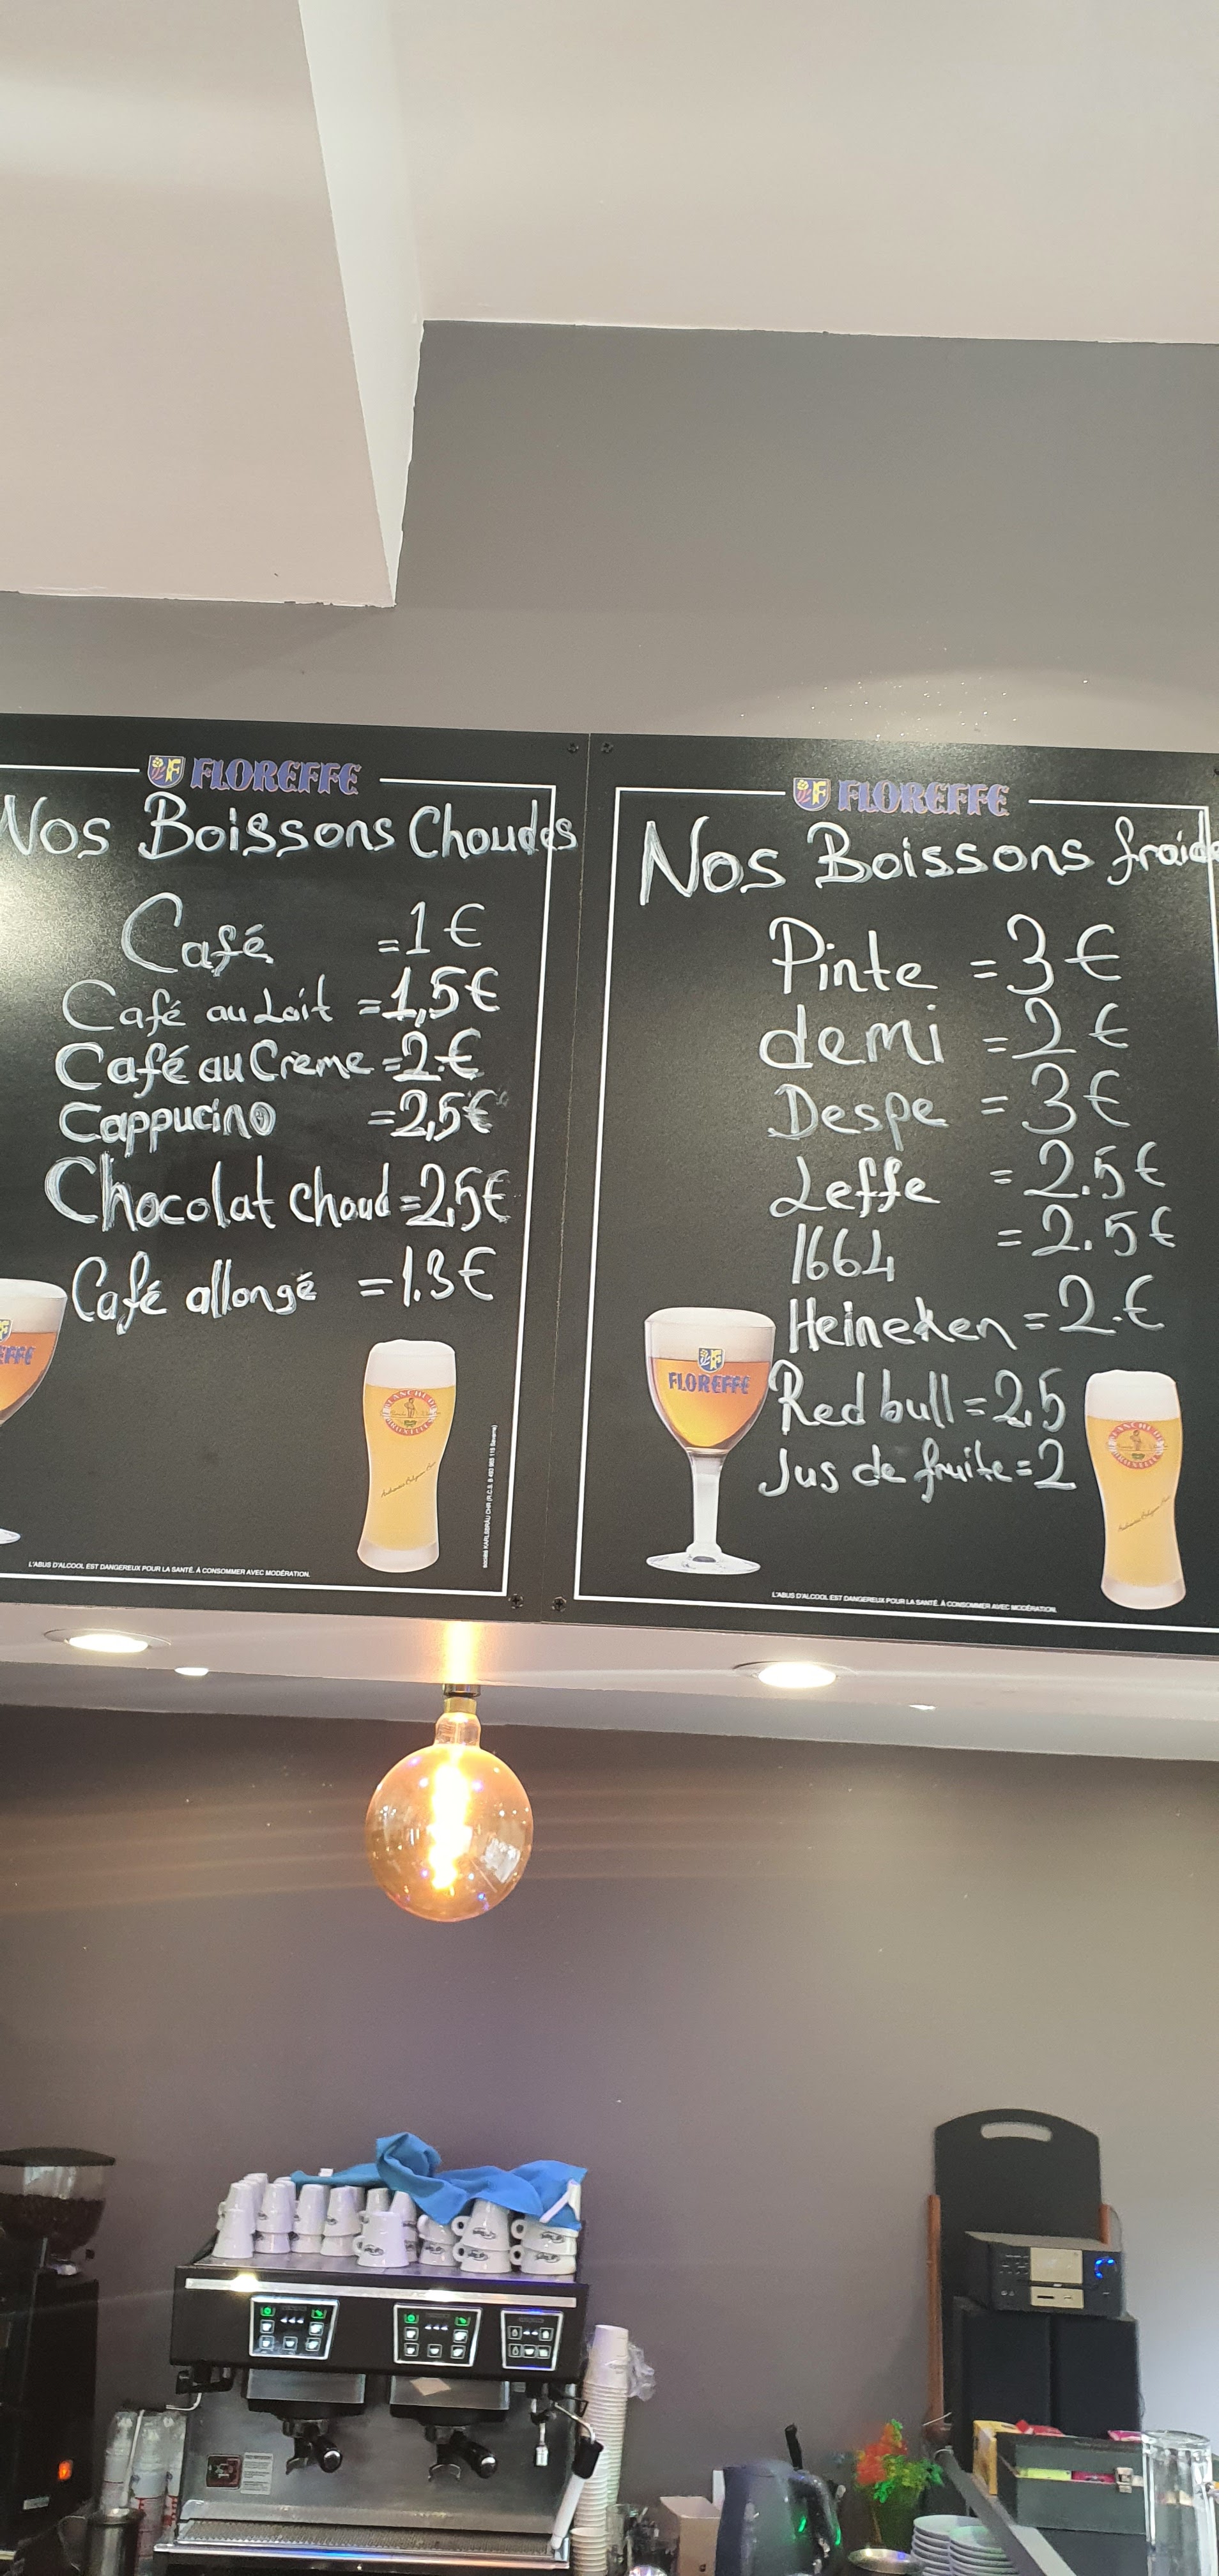 FLOREFFE
Nos Boissons Choudes
Café =1€
Café au Lait =1,5€
Café au Crème =2.€
Cappucino =2,5€
Chocolat choud =2,5€
Café allongé =1.3€
L'ABUS D'ALCOOL EST DANGEREUX POUR LA SANTÉ. À CONSOMMER AVEC MODÉRATION.
FLOREFFE
Nos Boissons fraide
Pinte =3€
demi =2€
Despe =3€
Leffe =2.5€
1664 =2.5€
Heineken =2.€
FLOREFFE
Red bull =2,5
Jus de fruite =2
L'ABUS D'ALCOOL EST DANGEREUX POUR LA SANTÉ. À CONSOMMER AVEC MODÉRATION.